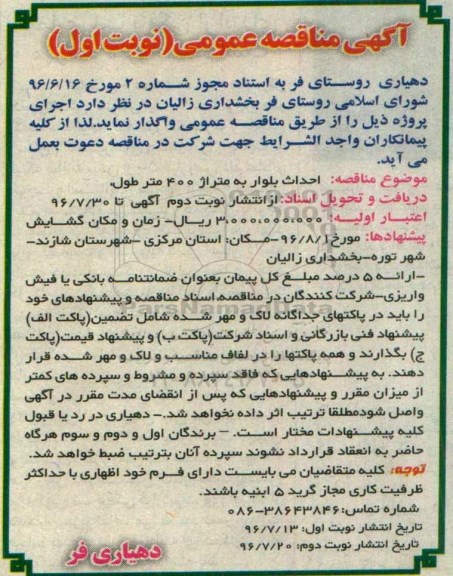 آگهی مناقصه عمومی(نوبت اول)
دهیاری روستای فر به استناد مجوز شماره ۲ مورخ ۹۶/۶/۱۶
شورای اسلامی روستای فر بخشداری زالیان در نظر دارد اجرای
پروژه ذیل را از طریق مناقصه عمومی واگذار نماید.لذا از کلیه
پیمانکاران واجد الشرایط جهت شرکت در مناقصه دعوت بعمل
می آید.
موضوع مناقصه: احداث بلوار به متراژ ۴۰۰ متر طول.
دریافت و تحویل اسناد: ازانتشار نوبت دوم آگهی تا ۹۶/۷/۳۰
اعتبار اولیه: ۳,۰۰۰,۰۰۰,۰۰۰ ریال- زمان و مکان گشایش
پیشنهادها: مورخ۹۶/۸/۱-مکان: استان مرکزی -شهرستان شازند-
شهر توره-بخشداری زالیان
-ارائه ۵ درصد مبلغ کل پیمان بعنوان ضمانتنامه بانکی یا فیش
واریزی-شرکت کنندگان در مناقصه،اسناد مناقصه و پیشنهادهای خود
را باید در پاکتهای جداگانه لاک و مهر شده شامل تضمین(پاکت الف)
پیشنهاد فنی بازرگانی و اسناد شرکت(پاکت ب) و پیشنهاد قیمت(پاکت
ج) بگذارند و همه پاکتها را در لفاف مناسب و لاک و مهر شده قرار
دهند. به پیشنهادهایی که فاقد سپرده و مشروط و سپرده های کمتر
از میزان مقرر و پیشنهادهایی که پس از انقضای مدت مقرر در آگهی
واصل شودمطلقا ترتیب اثر داده نخواهد شد.- دهیاری در رد یا قبول
کلیه پیشنهادات مختار است. - برندگان اول و دوم و سوم هرگاه
حاضر به انعقاد قرارداد نشوند سپرده آنان بترتیب ضبط خواهد شد.
توجه: کلیه متقاضیان می بایست دارای فرم خود اظهاری با حداکثر
ظرفیت کاری مجاز گرید ۵ ابنیه باشند.
شماره تماس:۳۸۶۴۳۸۴۶-۰۸۶
تاریخ انتشار نوبت اول: ۹۶/۷/۱۳
تاریخ انتشار نوبت دوم: ۹۶/۷/۲۰
دهیاری فر